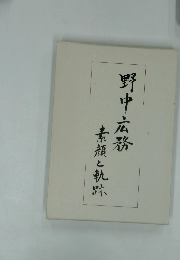 野中広務
素顔と軌跡